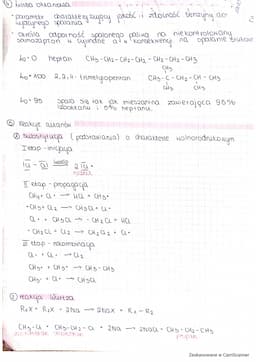 Liczba oktanowa
• parametr charakteryzujący jakość i zdolność benzyny do
spalania
• określa odporność spalanego paliwa na niekontrolowany
samozapłon w cylindrze
Lo=0 heptan CH₃-CH₂-CH₂-CH₂-CH₂-CH₂-CH₃
CH₃
Lo=100 2,2,4-trimetylopentan CH₃-C-CH₂-CH-CH₃
CH₃ CH₃
Lo=95 spala się tak jak mieszanina zawierająca 95%
izooktanu i 5% heptanu.
Reakcje alkanów
substytucja (podstawiania) o charakterze wolnorodnikowym
I etap - inicjacja
II etap - propagacja
CH₄ + Cl• → HCl + CH₃•
•CH₃ + Cl₂ → CH₃Cl + Cl•
Cl• + CH₃Cl → •CH₂Cl + HCl
•CH₂Cl + Cl₂ → CH₂Cl₂ + Cl•
III etap - rekombinacja
Cl• + Cl• → Cl₂
CH₃• + CH₃• → CH₃-CH₃
CH₃• + Cl• → CH₃Cl
reakcja Würtza
R₁X + R₂X + 2Na → 2NaX + R₁-R₂
CH₃-Cl + CH₃-CH₂-Cl + 2Na → 2NaCl + CH₃-CH₂-CH₃
propan
Zeskanowane w CamScanner